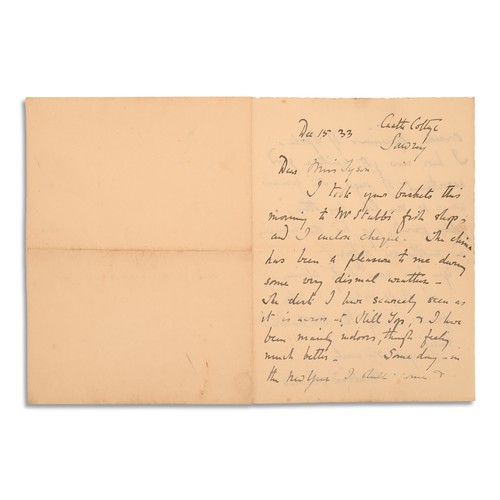 Dec 15 33 Castle Cottage
Sawrey
Dear Miss Tyson
I took your baskets this
morning to Mr Stubbs' fish shop,
and I enclose cheque. The china
has been a pleasure to me during
some very dismal weather –
The desk I have scarcely seen as
it is across at Hill Top, & I have
been mainly indoors, though feeling
much better – Some day – in
the New Year I